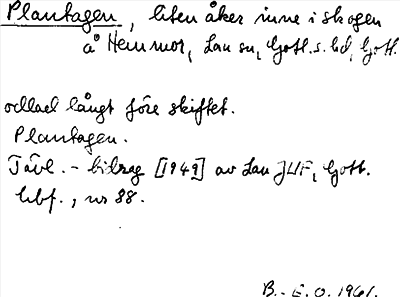 Plantagen, liten åker inne i skogen
å Hemmor, Lau sn, Gotl. s. hd, Gotl.
odlad långt före skiftet.
Plantagen.
Tävl. - bidrag [1949] av Lau JUF, Gotl.
hbf., nr 88.
B. - E. O. 1961.